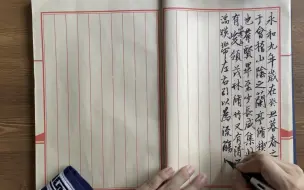 永和九年歲在癸丑暮春之
于會稽山陰之蘭亭脩稧
也羣賢畢至少長咸集
有峻領茂林脩竹又有清
湍暎帶左右引以為流觴